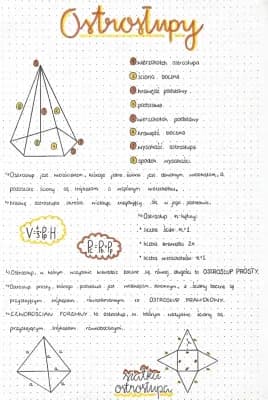 Ostrosłupy
wierzchołek ostrosłupa
ściana boczna
krawędź podstawy
podstawa
wierzchołek podstawy
krawędź boczna
wysokość ostrosłupa
spodek wysokości
Ostrosłup jest wielościanem, którego jedna ściana jest dowolnym wielokątem, a
pozostałe ściany są trójkątami o wspólnym wierzchołku.
Nazwę ostrosłupa określa wielokąt znajdujący się w jego podstawie.
Ostrosłup n-kątny:
liczba ścian n+1
liczba krawędzi 2n
liczba wierzchołków n+1
Ostrosłup, w którym wszystkie krawędzie boczne są równej długości to OSTROSŁUP PROSTY.
Ostrosłup prosty, którego podstawa jest wielokątem foremnym, a ściany boczne są
przystającymi trójkątami równoramiennymi to OSTROSŁUP PRAWIDŁOWY.
CZWOROŚCIAN FOREMNY to ostrosłup, w którym wszystkie ściany są
przystającymi trójkątami równobocznymi.
siatka
ostrosłupa